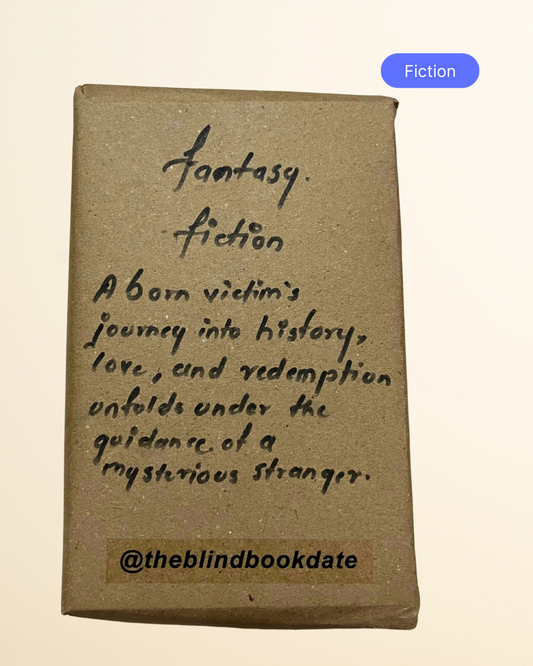 Fiction
fantasy.
fiction
A born victim's
journey into history,
love, and redemption
unfolds under the
guidance of a
mysterious stranger.
@theblindbookdate